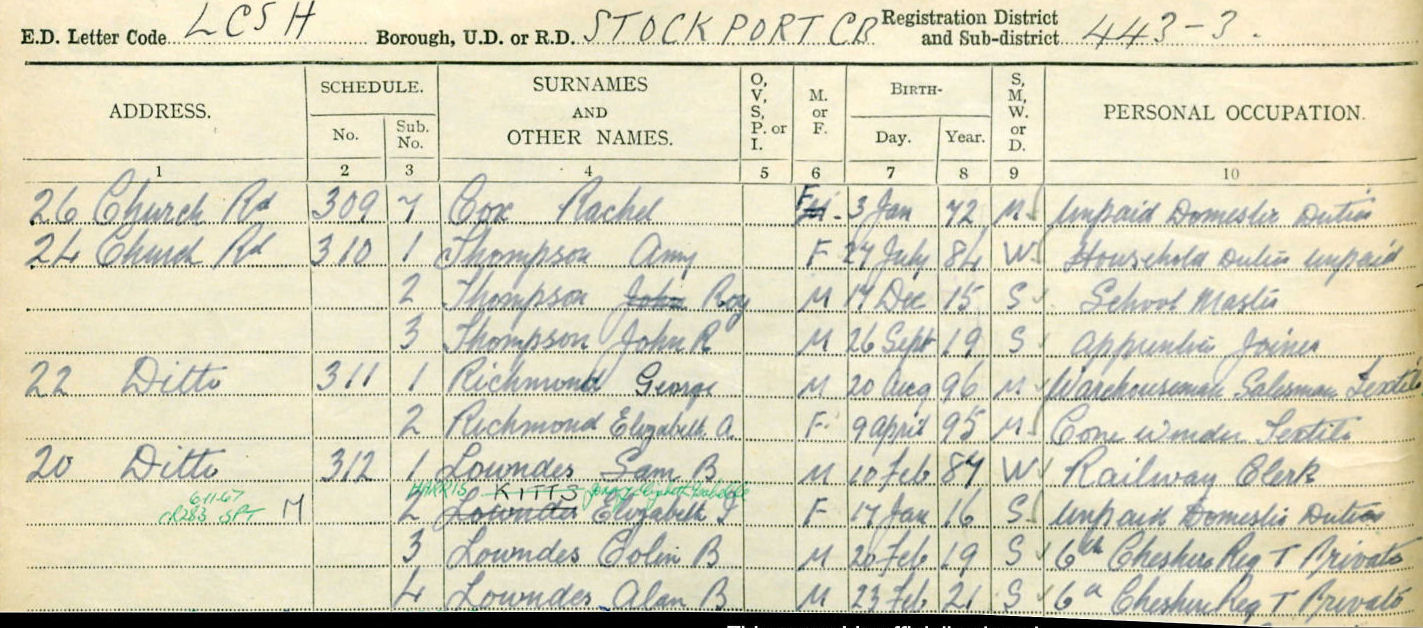 E.D. Letter Code LCSH Borough, U.D. or R.D. STOCKPORT CB Registration District and Sub-district 443-3.
ADDRESS. SCHEDULE. No. Sub. No. SURNAMES AND OTHER NAMES. O, V, S, P. or I. M. or F. BIRTH- Day. Year. S, M, W. or D. PERSONAL OCCUPATION.
1 2 3 4 5 6 7 8 9 10
26 Church Rd 309 7 Cox Rachel F 3 Jan 72 M Unpaid Domestic Duties
24 Church Rd 310 1 Thompson Amy F 27 July 84 W Household Duties unpaid
2 Thompson John Roy M 17 Dec 15 S School Master
3 Thompson John R M 26 Sept 19 S Apprentice Joiner
22 Ditto 311 1 Richmond George M 20 Aug 96 M Warehouseman Salesman Textile
2 Richmond Elizabeth A. F 9 April 95 M Cone Winder Textile
20 Ditto 312 1 Lowndes Sam B M 10 Feb 87 W Railway Clerk
HARRIS KITTS
6-11-67
CR283 SPT M 2 Lowndes Elizabeth I F 17 Jan 16 S Unpaid Domestic Duties
3 Lowndes Colin B M 20 Feb 19 S 6th Cheshire Reg T Private
4 Lowndes Alan B M 23 Feb 21 S 6th Cheshire Reg T Private